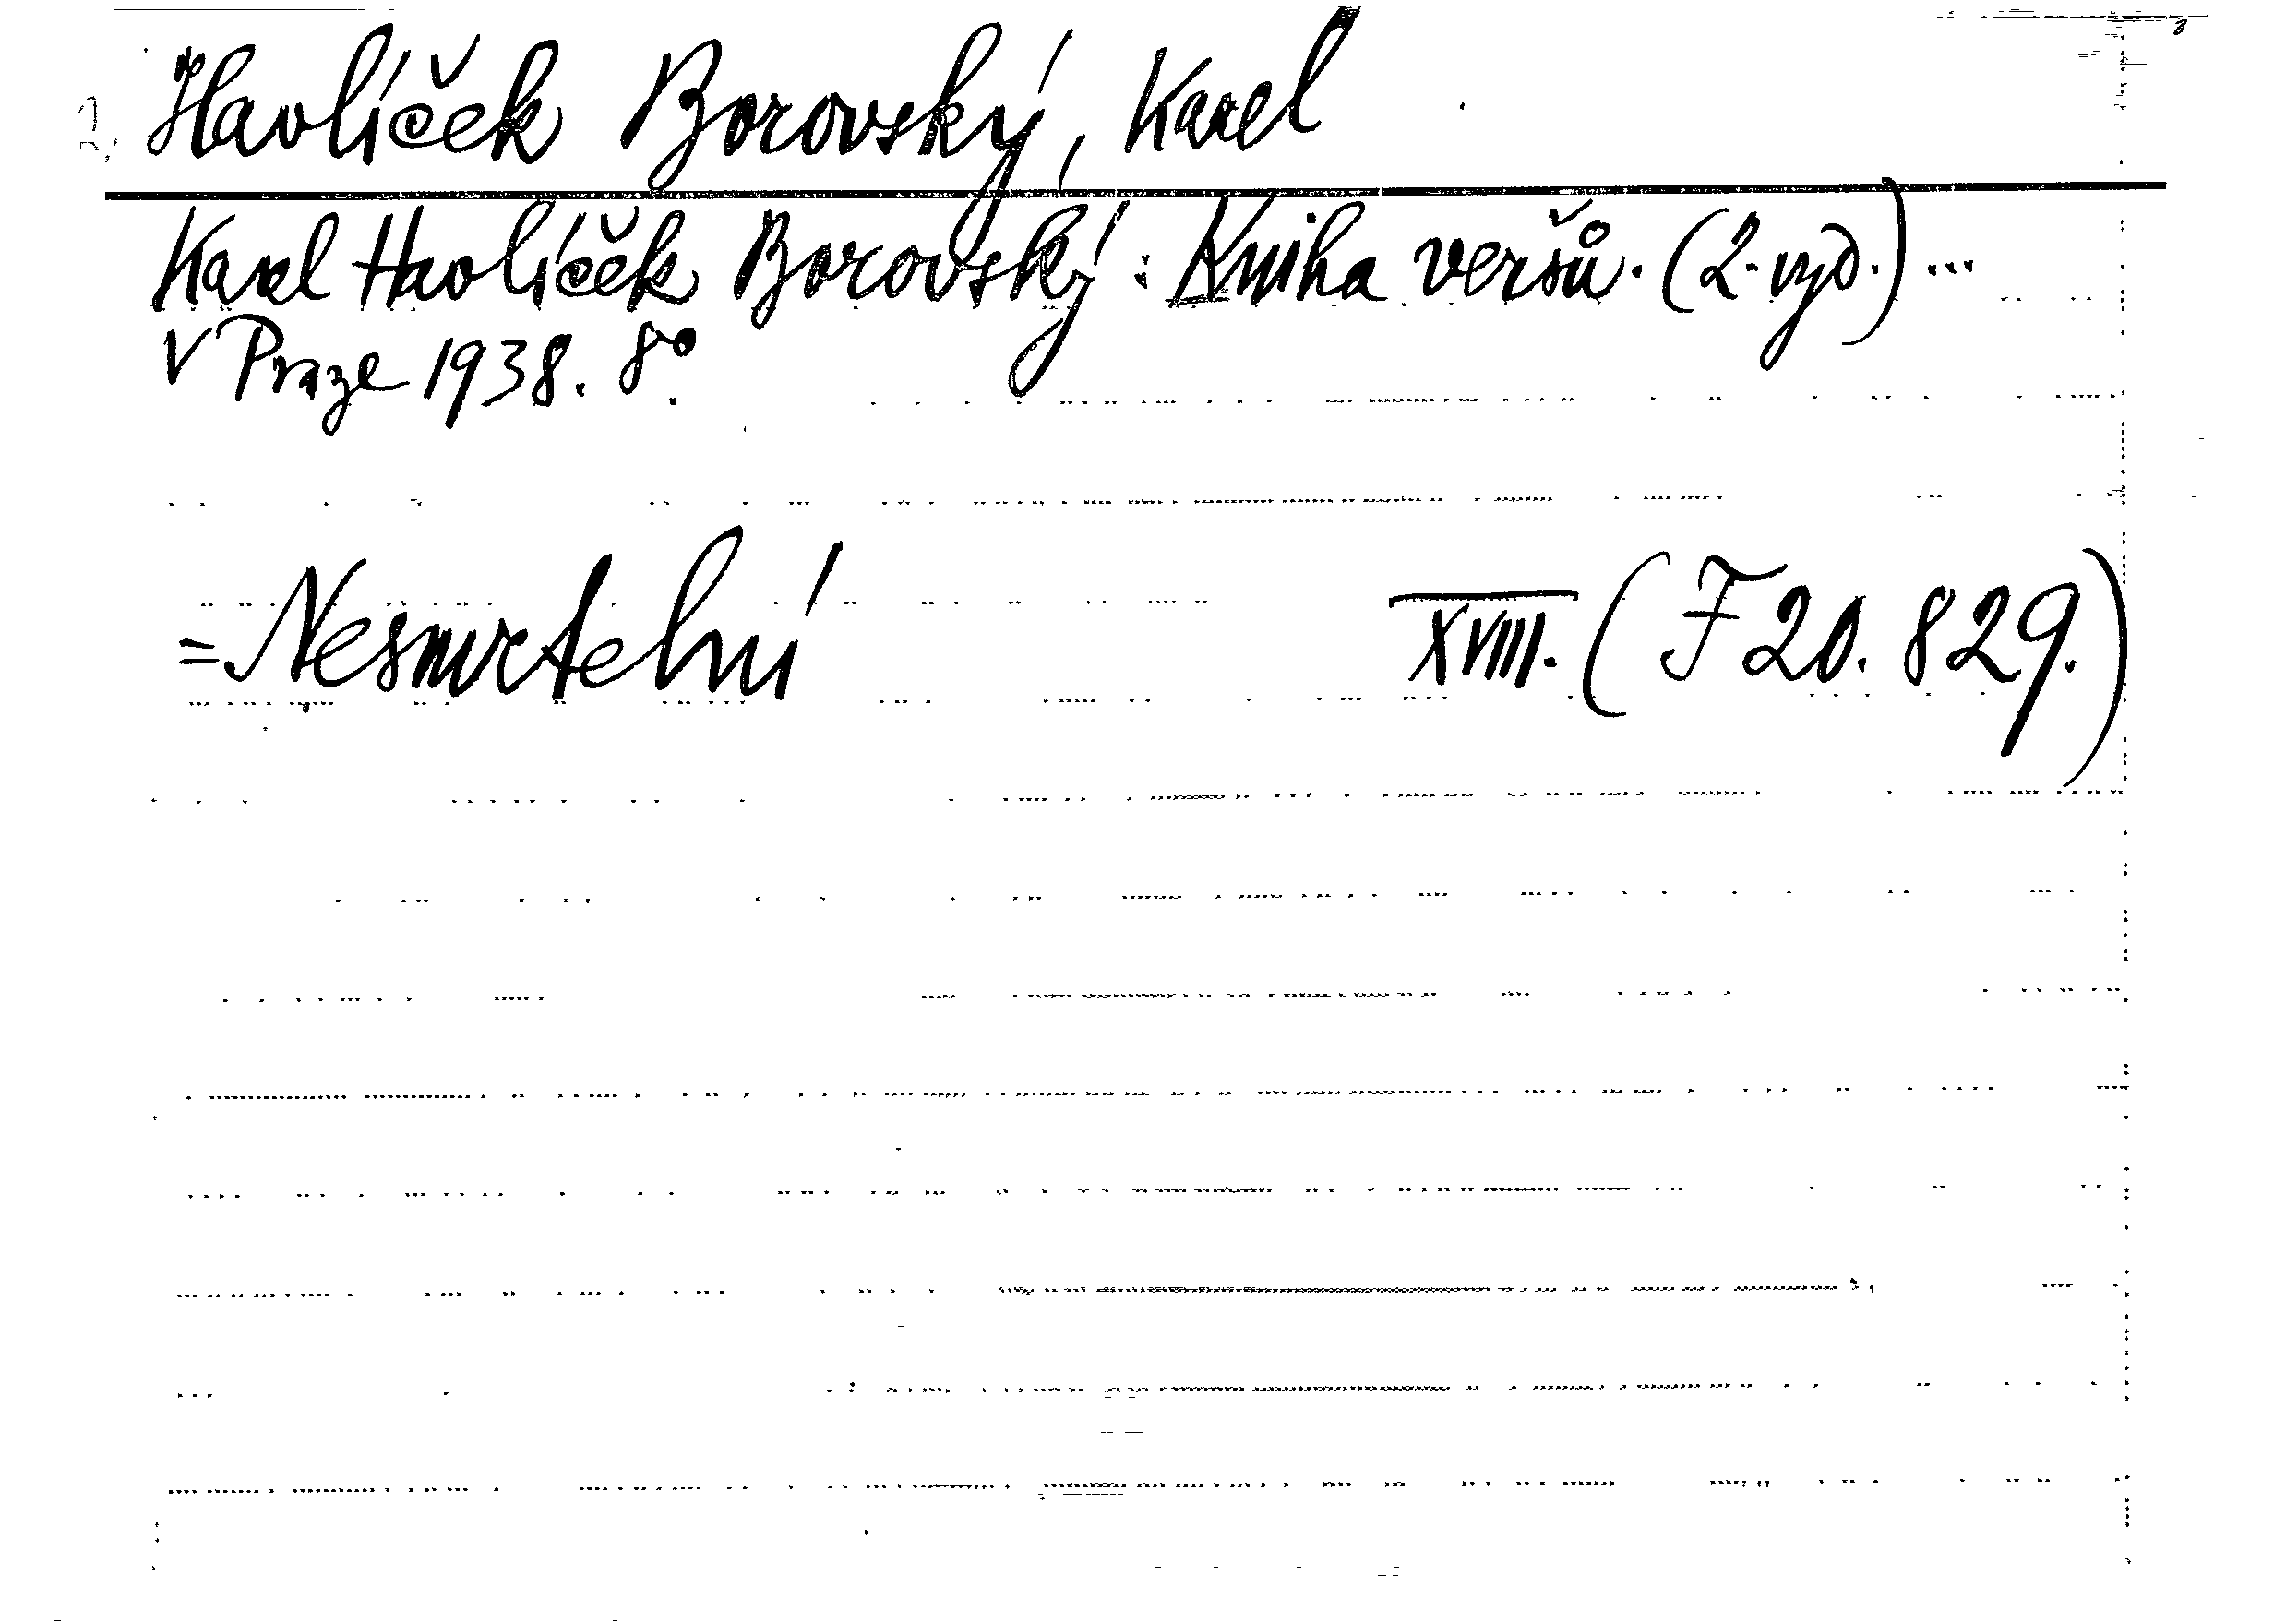 Havlíček Borovský, Karel
Karel Havlíček Borovský: Kniha veršů. (2. vyd.) ...
V Praze 1938. 8°.
=Nesmrtelní XVIII. (F 20.829.)